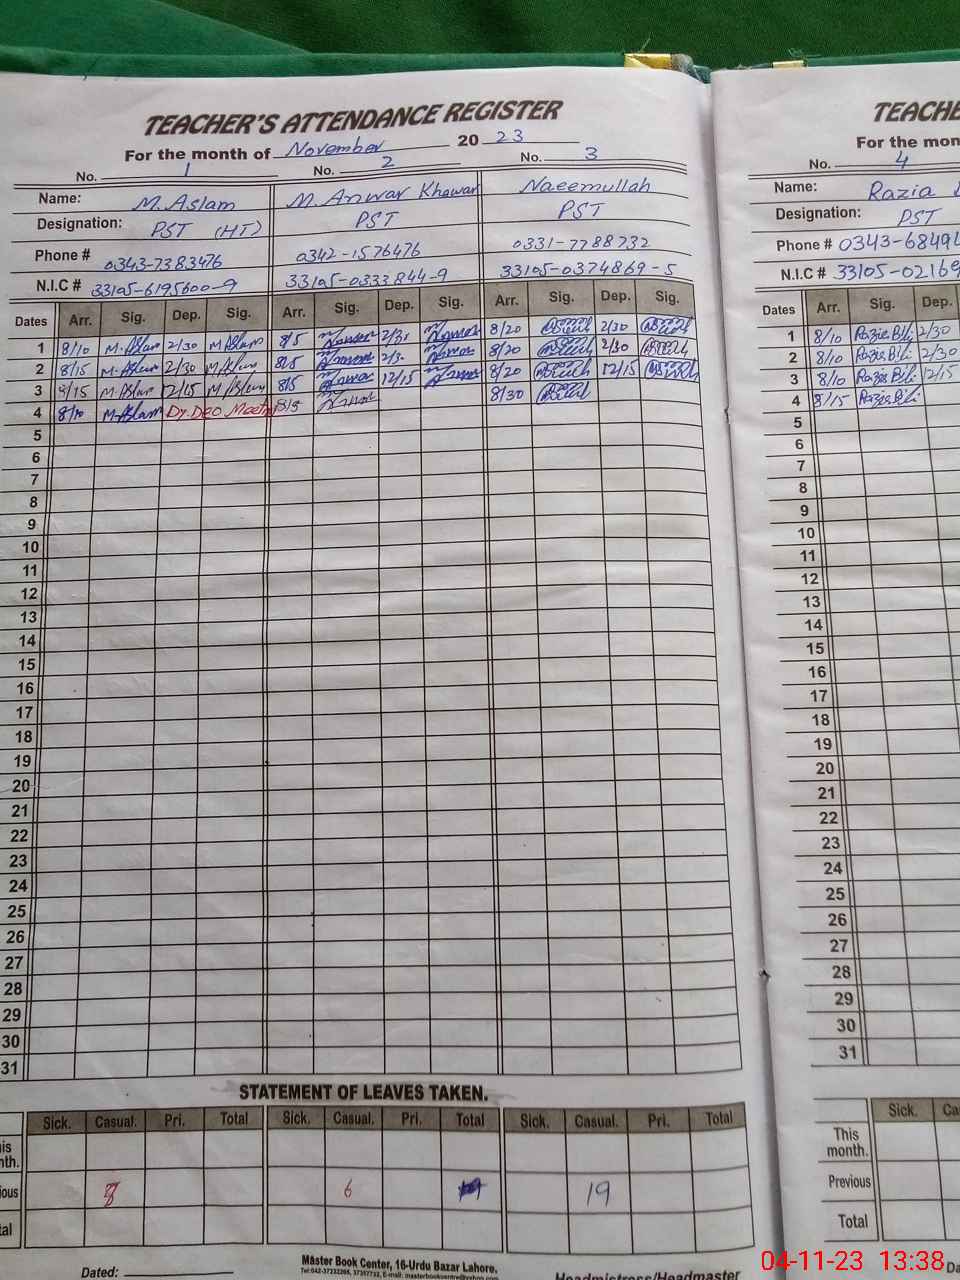 TEACHER'S ATTENDANCE REGISTER
For the month of November 2023
No. 1 No. 2 No. 3
Name: M. Aslam M. Anwar Khawar Naeemullah
Designation: PST (HT) PST PST
Phone # 0343-7383476 0342-1576476 0331-7788732
N.I.C # 33105-6195600-9 33105-0333844-9 33105-0374869-5
Dates Arr. Sig. Dep. Sig. Arr. Sig. Dep. Sig. Arr. Sig. Dep. Sig.
1 8/10 M. Aslam 2/30 M Aslam 8/5 2/31 8/20 2/30
2 8/15 M. Aslam 2/30 M Aslam 8/5 2/3. 8/20 2/30
3 8/15 M Aslam 12/15 M Aslam 8/5 12/15 8/20 12/15
4 8/10 M. Aslam Dy. Deo Meeting 8/5 8/30
5
6
7
8
9
10
11
12
13
14
15
16
17
18
19
20
21
22
23
24
25
26
27
28
29
30
31
STATEMENT OF LEAVES TAKEN.
Sick. Casual. Pri. Total Sick. Casual. Pri. Total Sick. Casual. Pri. Total
is
nth.
ious 8 6 19
tal
Dated:
Master Book Center, 16-Urdu Bazar Lahore,
Headmistress/Headmaster
TEACHE
For the mon
No. 4
Name: Razia B
Designation: PST
Phone # 0343-68494
N.I.C # 33105-02169
Dates Arr. Sig. Dep.
1 8/10 Razia Bibi 2/30
2 8/10 Razia Bibi 2/30
3 8/10 Razia Bibi 12/15
4 8/15 Razia Bibi
5
6
7
8
9
10
11
12
13
14
15
16
17
18
19
20
21
22
23
24
25
26
27
28
29
30
31
Sick. Ca
This
month.
Previous
Total
Da
04-11-23 13:38